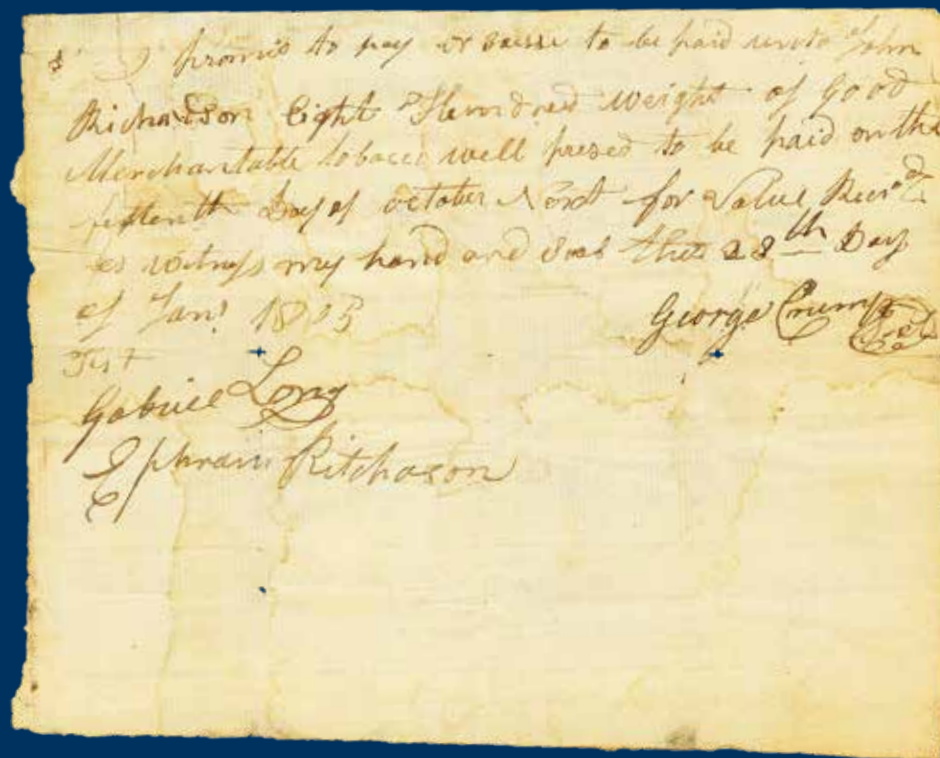 I promis to pay or Causse to be paid unto John
Richardson Eight Hundred Weight of Good
Merchantable tobacco well presed to be paid on the
Day of october Next for Value Receivd
as witness my hand and Seal this 28th Day
of Jany 1803
George Crump Seal
Test
Gabriel Long
Ephraim Ritchason